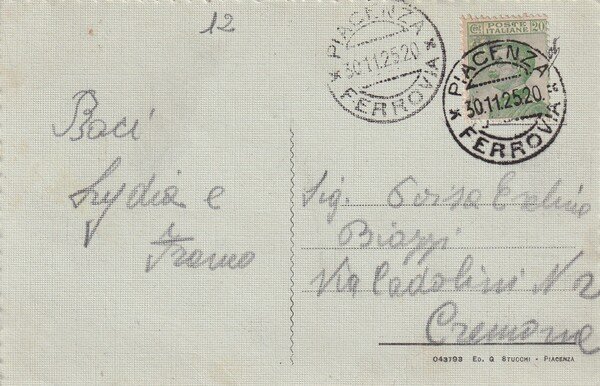 12
PIACENZA
30.11.25.20
FERROVIA
POSTE ITALIANE 20
PIACENZA
30.11.25.20
FERROVIA
Baci
Lydia e
Sig.
Biazzi
Via Cadolini N 2
Cremona
043793 ED. G STUCCHI - PIACENZA